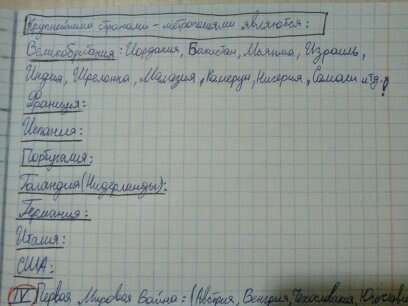 Крупнейшими странами-метрополиями являются:
Великобритания: Иордания, Пакистан, Мьянма, Израиль,
Индия, Шриланка, Малазия, Камерун, Нигерия, Сомали и тд.
Франция:
Испания:
Португалия:
Голандия (Нидерланды):
Германия:
Италия:
США:
IV Первая Мировая Война: (Австрия, Венгрия, Чехословакия, Югослави